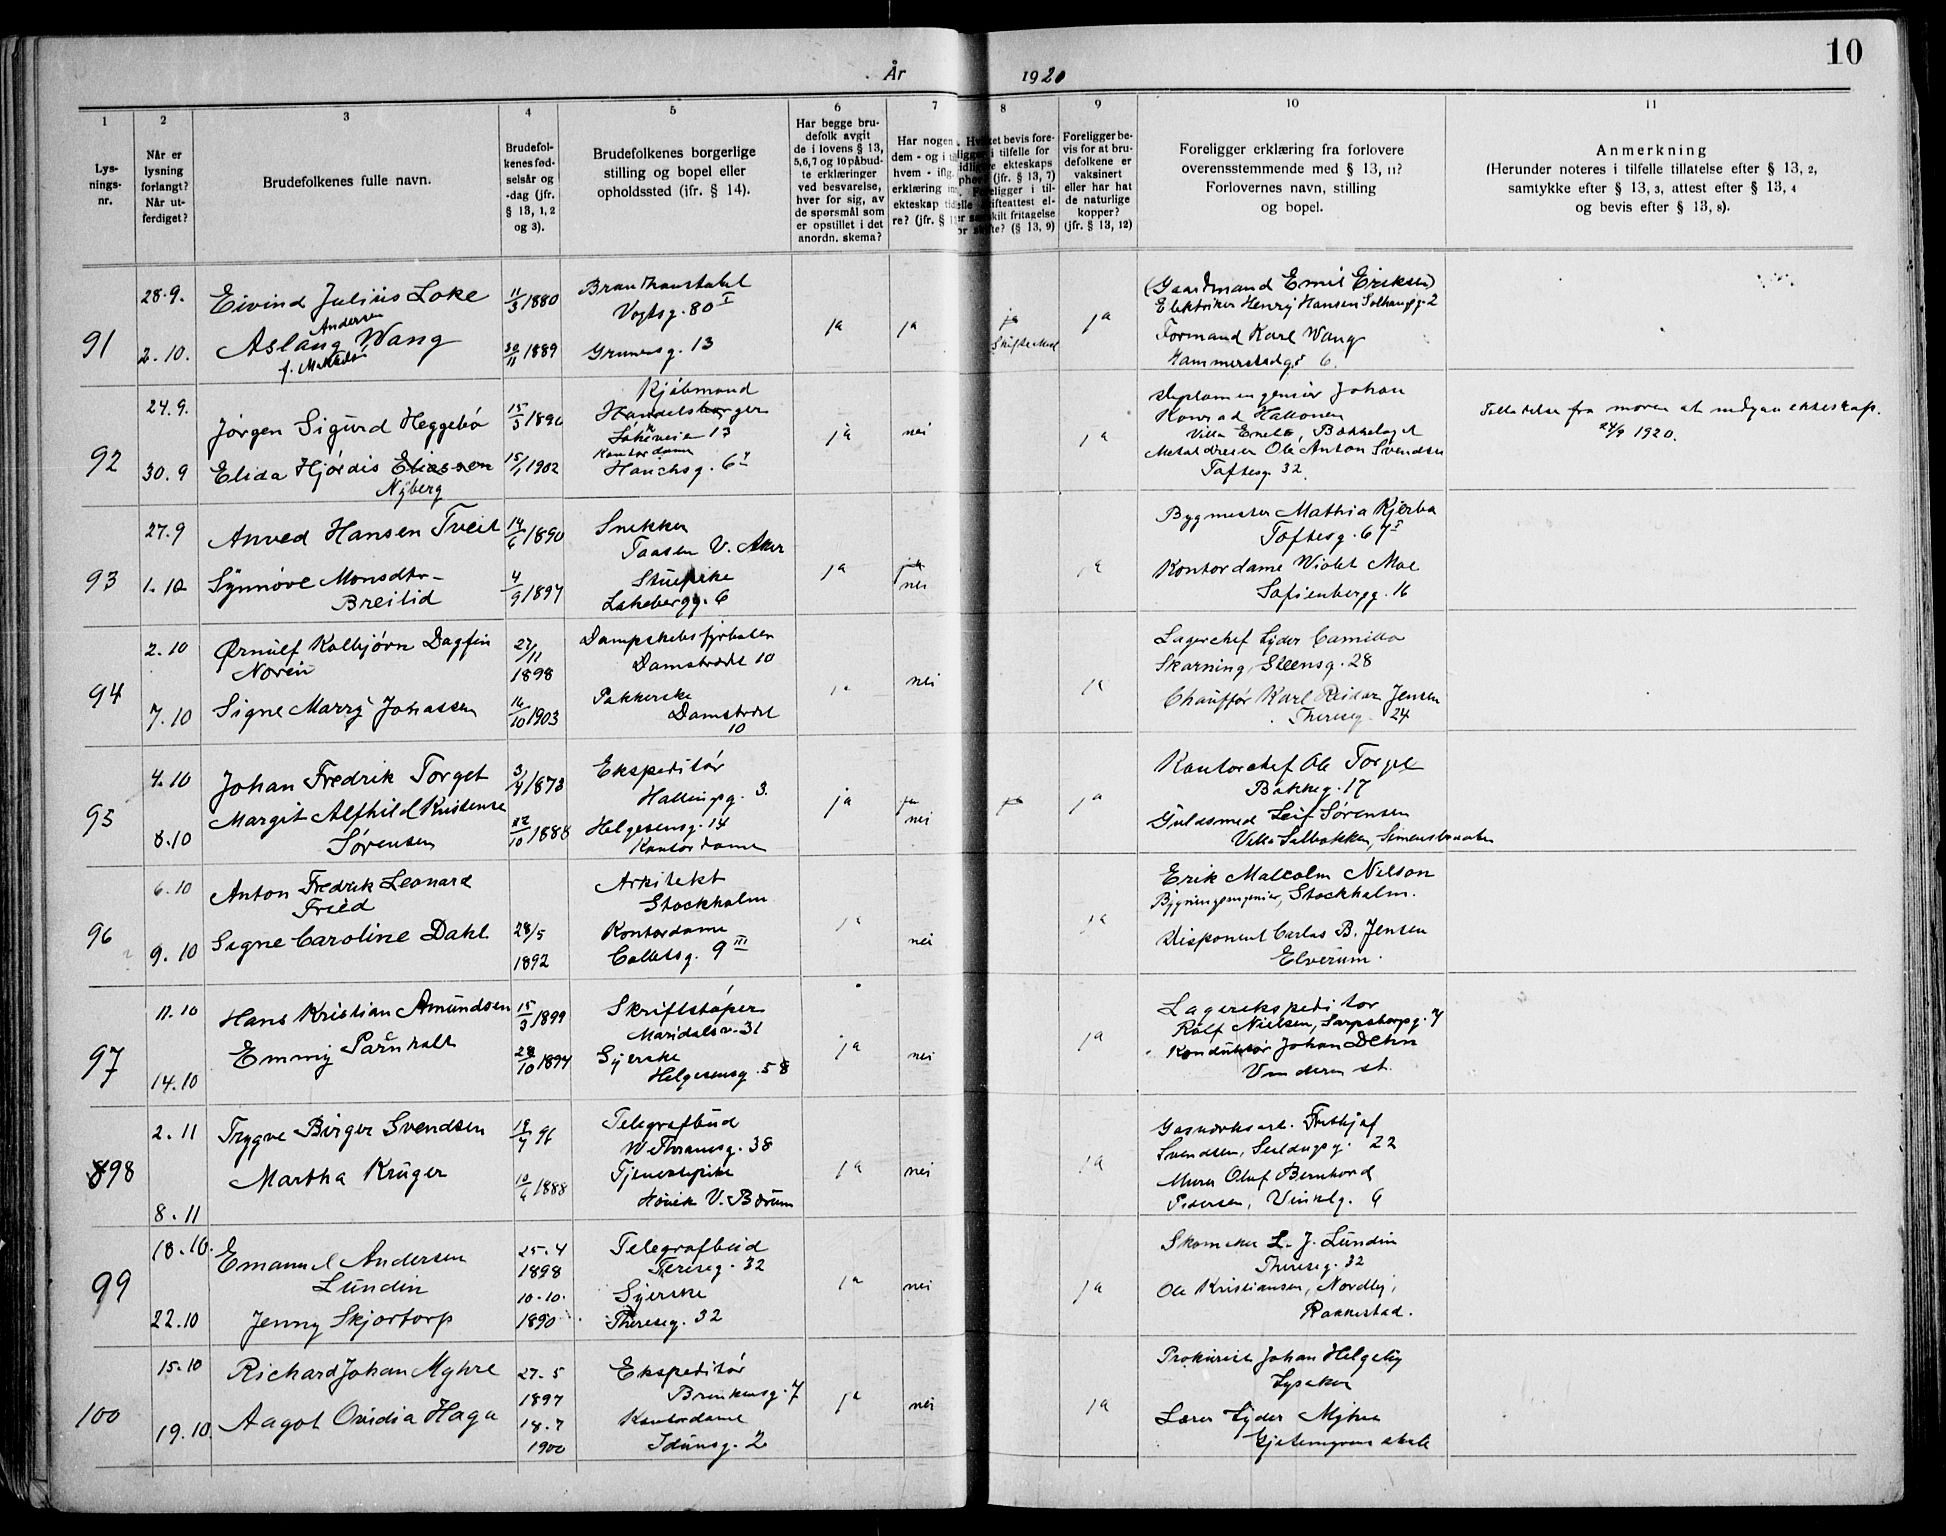 10
År 1920
1 2 3 4 5 6 7 8 9 10 11
Lys-
nings-
nr.
Når er
lysning
forlangt?
Når ut-
ferdiget?
Brudefolkenes fulle navn.
Brudefol-
kenes fød-
selsår og
-dag (jfr.
§ 13, 1, 2
og 3).
Brudefolkenes borgerlige
stilling og bopel eller
opholdssted (jfr. § 14).
Har begge bru-
defolk avgit
de i lovens § 13,
5,6,7 og 10 påbud-
te erklæringer
ved besvarelse,
hver for sig, av
de spørsmål som
er opstillet i det
anordn. skema?
Har nogen
dem - og i
hvem - iflg.
erklæring
ekteskap
re? (jfr. §
bevis fore-
i tilfelle for
ekteskaps
(jfr. § 13, 7)
Foreligger i til-
skifteattest el-
fritagelse
(§ 13, 9)
Foreligger be-
vis for at bru-
defolkene er
vaksinert
eller har hat
de naturlige
kopper?
(jfr. § 13, 12)
Foreligger erklæring fra forlovere
overensstemmende med § 13, 11?
Forlovernes navn, stilling
og bopel.
Anmerkning
(Herunder noteres i tilfelle tillatelse efter § 13, 2,
samtykke efter § 13, 3, attest efter § 13, 4
og bevis efter § 13, 8).
91
28.9.
2.10.
Eivind Julius Loke
Andersen
Aslaug Wang
11/3 1880
30/11 1889
Brandkonstabel
Vogtsg. 80 I
Grünersg. 13
ja ja ja ja
(Gaardmand Emil Eriksen)
Elektriker Henry Hansen
Formand Karl Wang
Hammerstadg. 6.
92
24.9.
30.9
Jørgen Sigurd Heggebø
Elida Hjørdis Eliassen
Nyberg
15/3 1890
15/1 1902
Kjøbmand
Handelsborger
Kontordame
Hauchsg. 6
ja nei ja
Diplomingeniør Johan
Konrad
Villa Bækkelaget
Metaldreier Ole Anton Svendsen
Toftesg. 32.
Tillatelse fra moren at indgaa ekteskap.
24/9 1920.
93
27.9
1.10
Anved Hansen Tveit
Synnøve Monsdtr-
Breilid
14/6 1890
4/9 1897
Snekker
Taasen V. Aker
Stuepike
Lakebergg. 6
ja ja nei ja
Bygmester Mathia
Toftesg. 67 I
Kontordame Violet Moe
Sofienbergg. 16
94
2.10
7.10
Ørnulf Kolbjørn Dagfin
Noren
Signe Marry Johassen
27/11
1898
16/10 1903
Dampskibsfyrbøter
Damstrædet 10
Pakkerske
Damstrædet
10
ja nei ja
Lagerchef Lyder Camillo
Skarning, Steensg. 28
Chauffør Karl Reidar Jensen
Theresesg. 24
95
4.10
8.10
Johan Fredrik Torget
Margit Alfhild Kristense
Sørensen
3/4 1873
22/10 1888
Ekspeditør
Hallingsg. 3.
Helgesensg. 14
Kontordame
ja ja nei ja ja
Kontorchef Ole Torget
Bakkeg. 17
Guldsmed Leif Sørensen
Villa Solbakken,
96
6.10
9.10
Anton Fredrik Leonard
Fried
Signe Caroline Dahl
28/5
1892
Arkitekt
Stockholm
Kontordame
Colletsg. 9 III
ja nei ja
Erik Malcolm Nilson
Bygningsingeniør, Stockholm.
Disponent Carlos B. Jensen
Elverum.
97
11.10
14.10
Hans Kristian Amundsen
Emmy Parnhalt
15/3 1899
28/10 1897
Skriftstøper
Maridalsv. 31
Syerske
Helgesensg. 58
ja nei ja
Lagerekspeditør
Rolf Nielsen, Sarpsborgg. 7
Konduktør Johan Dehn
Vinderen st.
898
2.11
8.11
Trygve Birger Svendsen
Martha Krüger
19/7 96
10/6 1888
Telegrafbud
W. Thranesg. 38
Tjenestepike
Høvik V. Bærum
ja nei ja
Gasverksarb. Frithjof
Svendsen, Seildugsg. 22
Murer Oluf Bernhard
Pedersen, Vinkelg. 6
99
18.10.
22.10
Emanuel Andersen
Lundin
Jenny Skjortorp
25.4
1898
10.10.
1890
Telegrafbud
Teresesg. 32
Syerske
Theresesg. 32
ja nei ja
Skomaker L. J. Lundin
Theresesg. 32
Ole Kristiansen, Nordby,
Rakkestad.
100
15.10
19.10.
Richard Johan Myhre
Aagot Ovidia Haga
27.5
1897
18.7
1900
Ekspeditør
Brinkensg. 7
Kontordame
Idunsg. 2
ja nei ja
Prokurist Johan Helgeby
Lysaker
Lærer Lyder Myhre